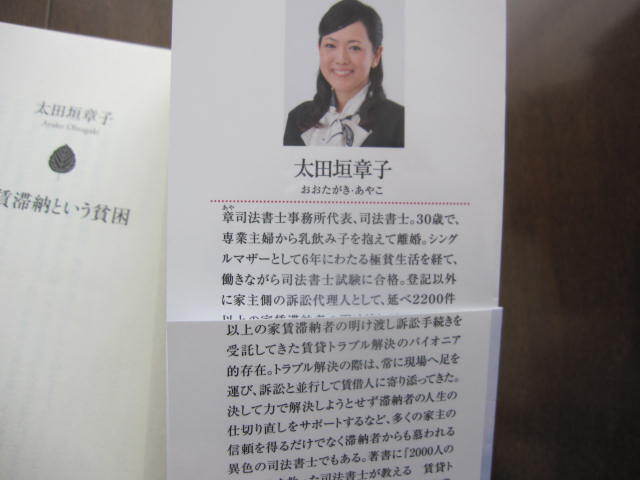 太田垣章子
Ayako Ohtagaki
賃滞納という貧困
太田垣章子
おおたがき・あやこ
あや
章司法書士事務所代表、司法書士。30歳で、
専業主婦から乳飲み子を抱えて離婚。シング
ルマザーとして6年にわたる極貧生活を経て、
働きながら司法書士試験に合格。登記以外
に家主側の訴訟代理人として、延べ2200件
以上の家賃滞納者の明け渡し訴訟手続きを
受託してきた賃貸トラブル解決のパイオニア
的存在。トラブル解決の際は、常に現場へ足を
運び、訴訟と並行して賃借人に寄り添ってきた。
決して力で解決しようとせず滞納者の人生の
仕切り直しをサポートするなど、多くの家主の
信頼を得るだけでなく滞納者からも慕われる
異色の司法書士でもある。著書に「2000人の
った司法書士が教える 賃貸ト